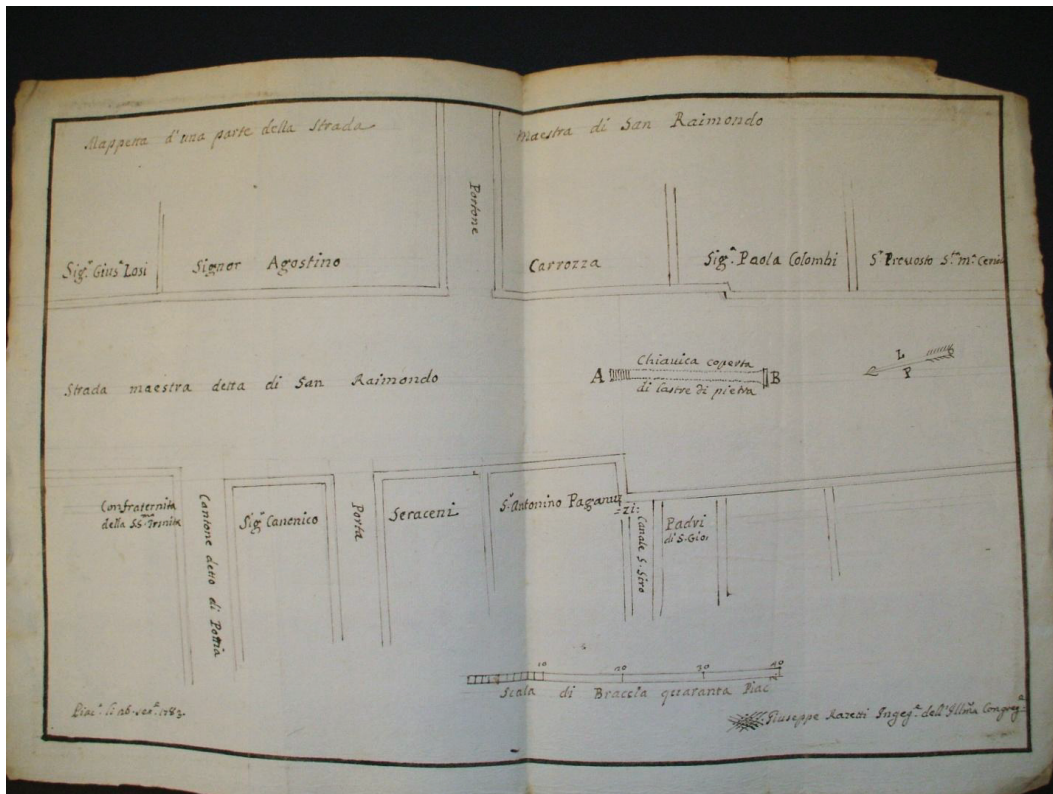 Mappetta d'una parte della Strada maestra di San Raimondo
Portone
Sig.r Gius.e Losi
Signor Agostino
Carrozza
Sig.a Paola Colombi
S.r Prevosto S.ta M.a
Strada maestra detta di San Raimondo
Chiavica coperta
A B
di lastre di pietra
L
P
Confraternita
della SS.ma Trinità
Cantone detto di
Sig.r Canonico
Porta
Seraceni
S.r Antonino Paganuzzi
Canale S. Siro
Padri
di S. Gio:
10 20 30 40
Scala di Braccia quaranta Piac.
Piac.a li 26 1783.
Giuseppe Ingeg.e dell'Ill.ma Congreg.e